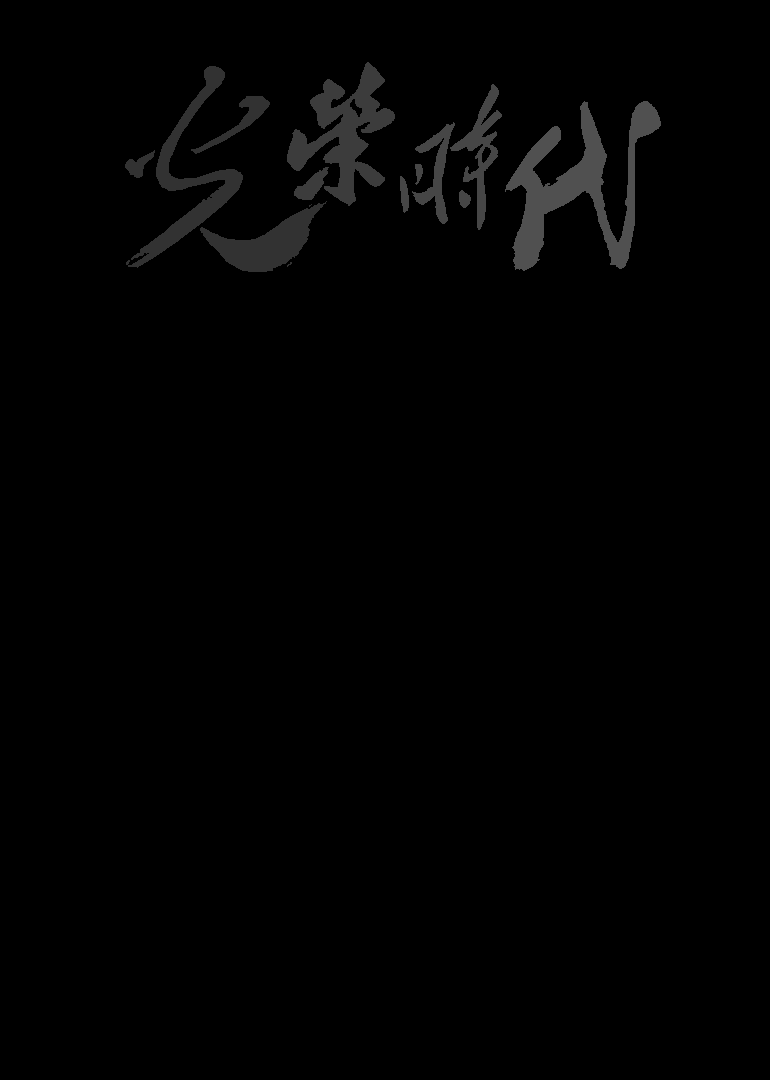 光榮時代